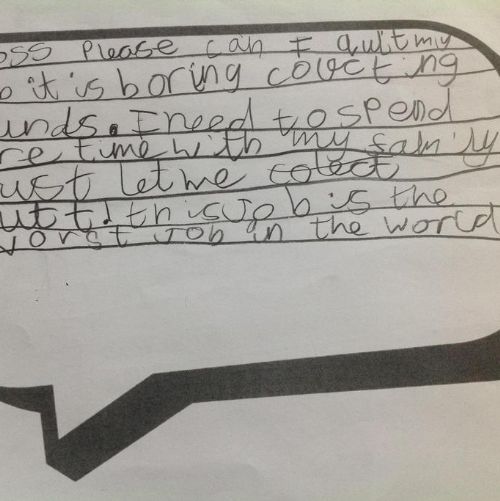 oss please can I quit my
b it is boring colecting
unds. I need to spend
re time with my family
ust let me colect
uit! this job is the
worst job in the world